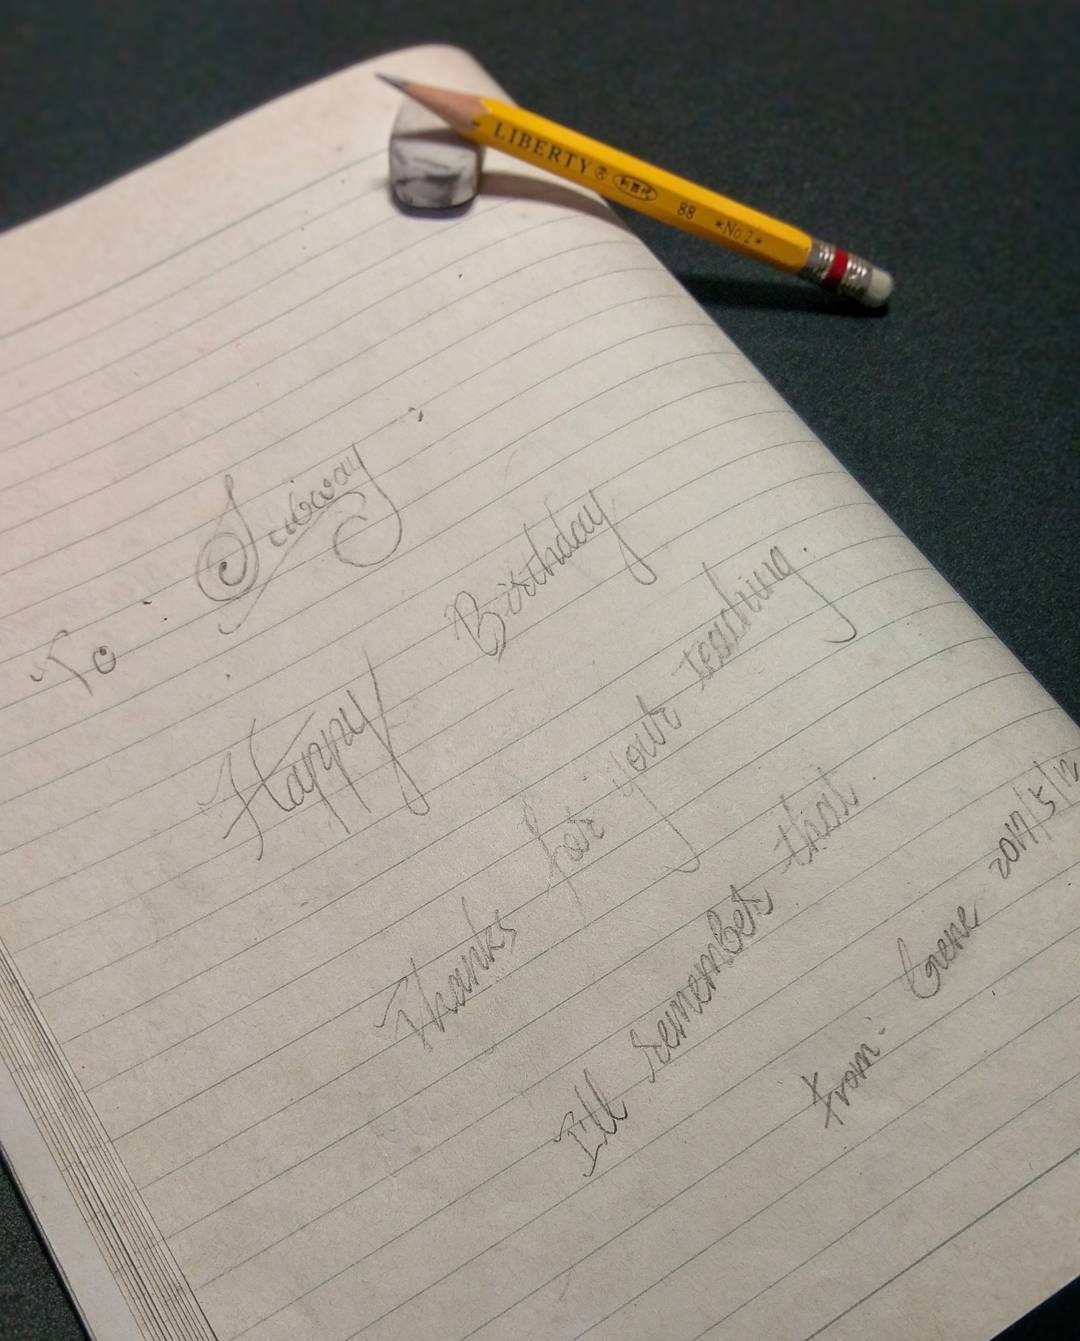 LIBERTY
88 *No 2*
To : Subway :
Happy Birthday
Thanks for your teaching.
I'll remember that
From: Gene 2017/5/12